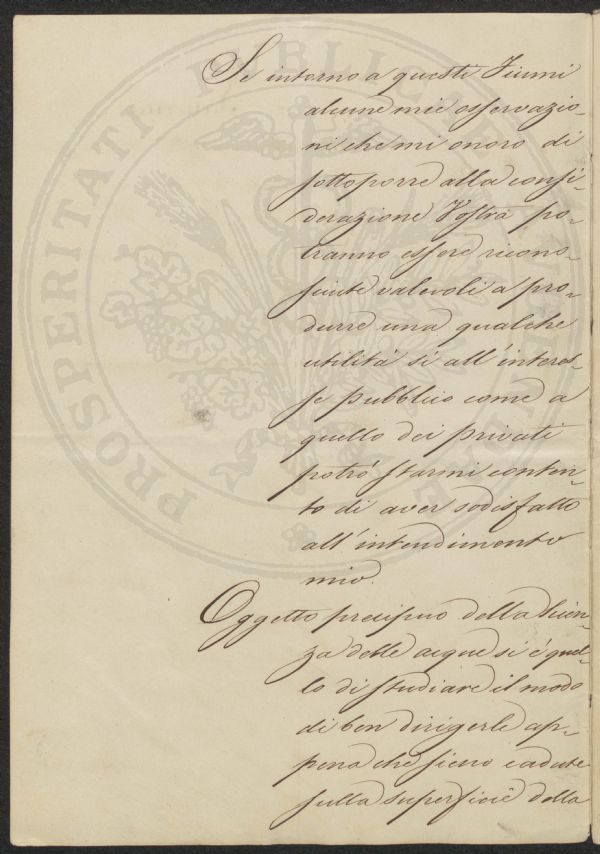 Se intorno a questi Fiumi
alcune mie osservazio-
ni che mi onoro di
sottoporre alla consi-
derazione Vostra po-
tranno essere ricono-
sciute valevoli a pro-
durre una qualche
utilità sì all'interes-
se pubblico come a
quello dei privati
potrò starmi conten-
to di aver sodisfatto
all'intendimento
mio.
Oggetto precipuo della Scien-
za delle acque si è quel-
lo di studiare il modo
di ben dirigerle ap-
pena che sieno cadute
sulla superficie della
PROSPERITATI PUBLICAE